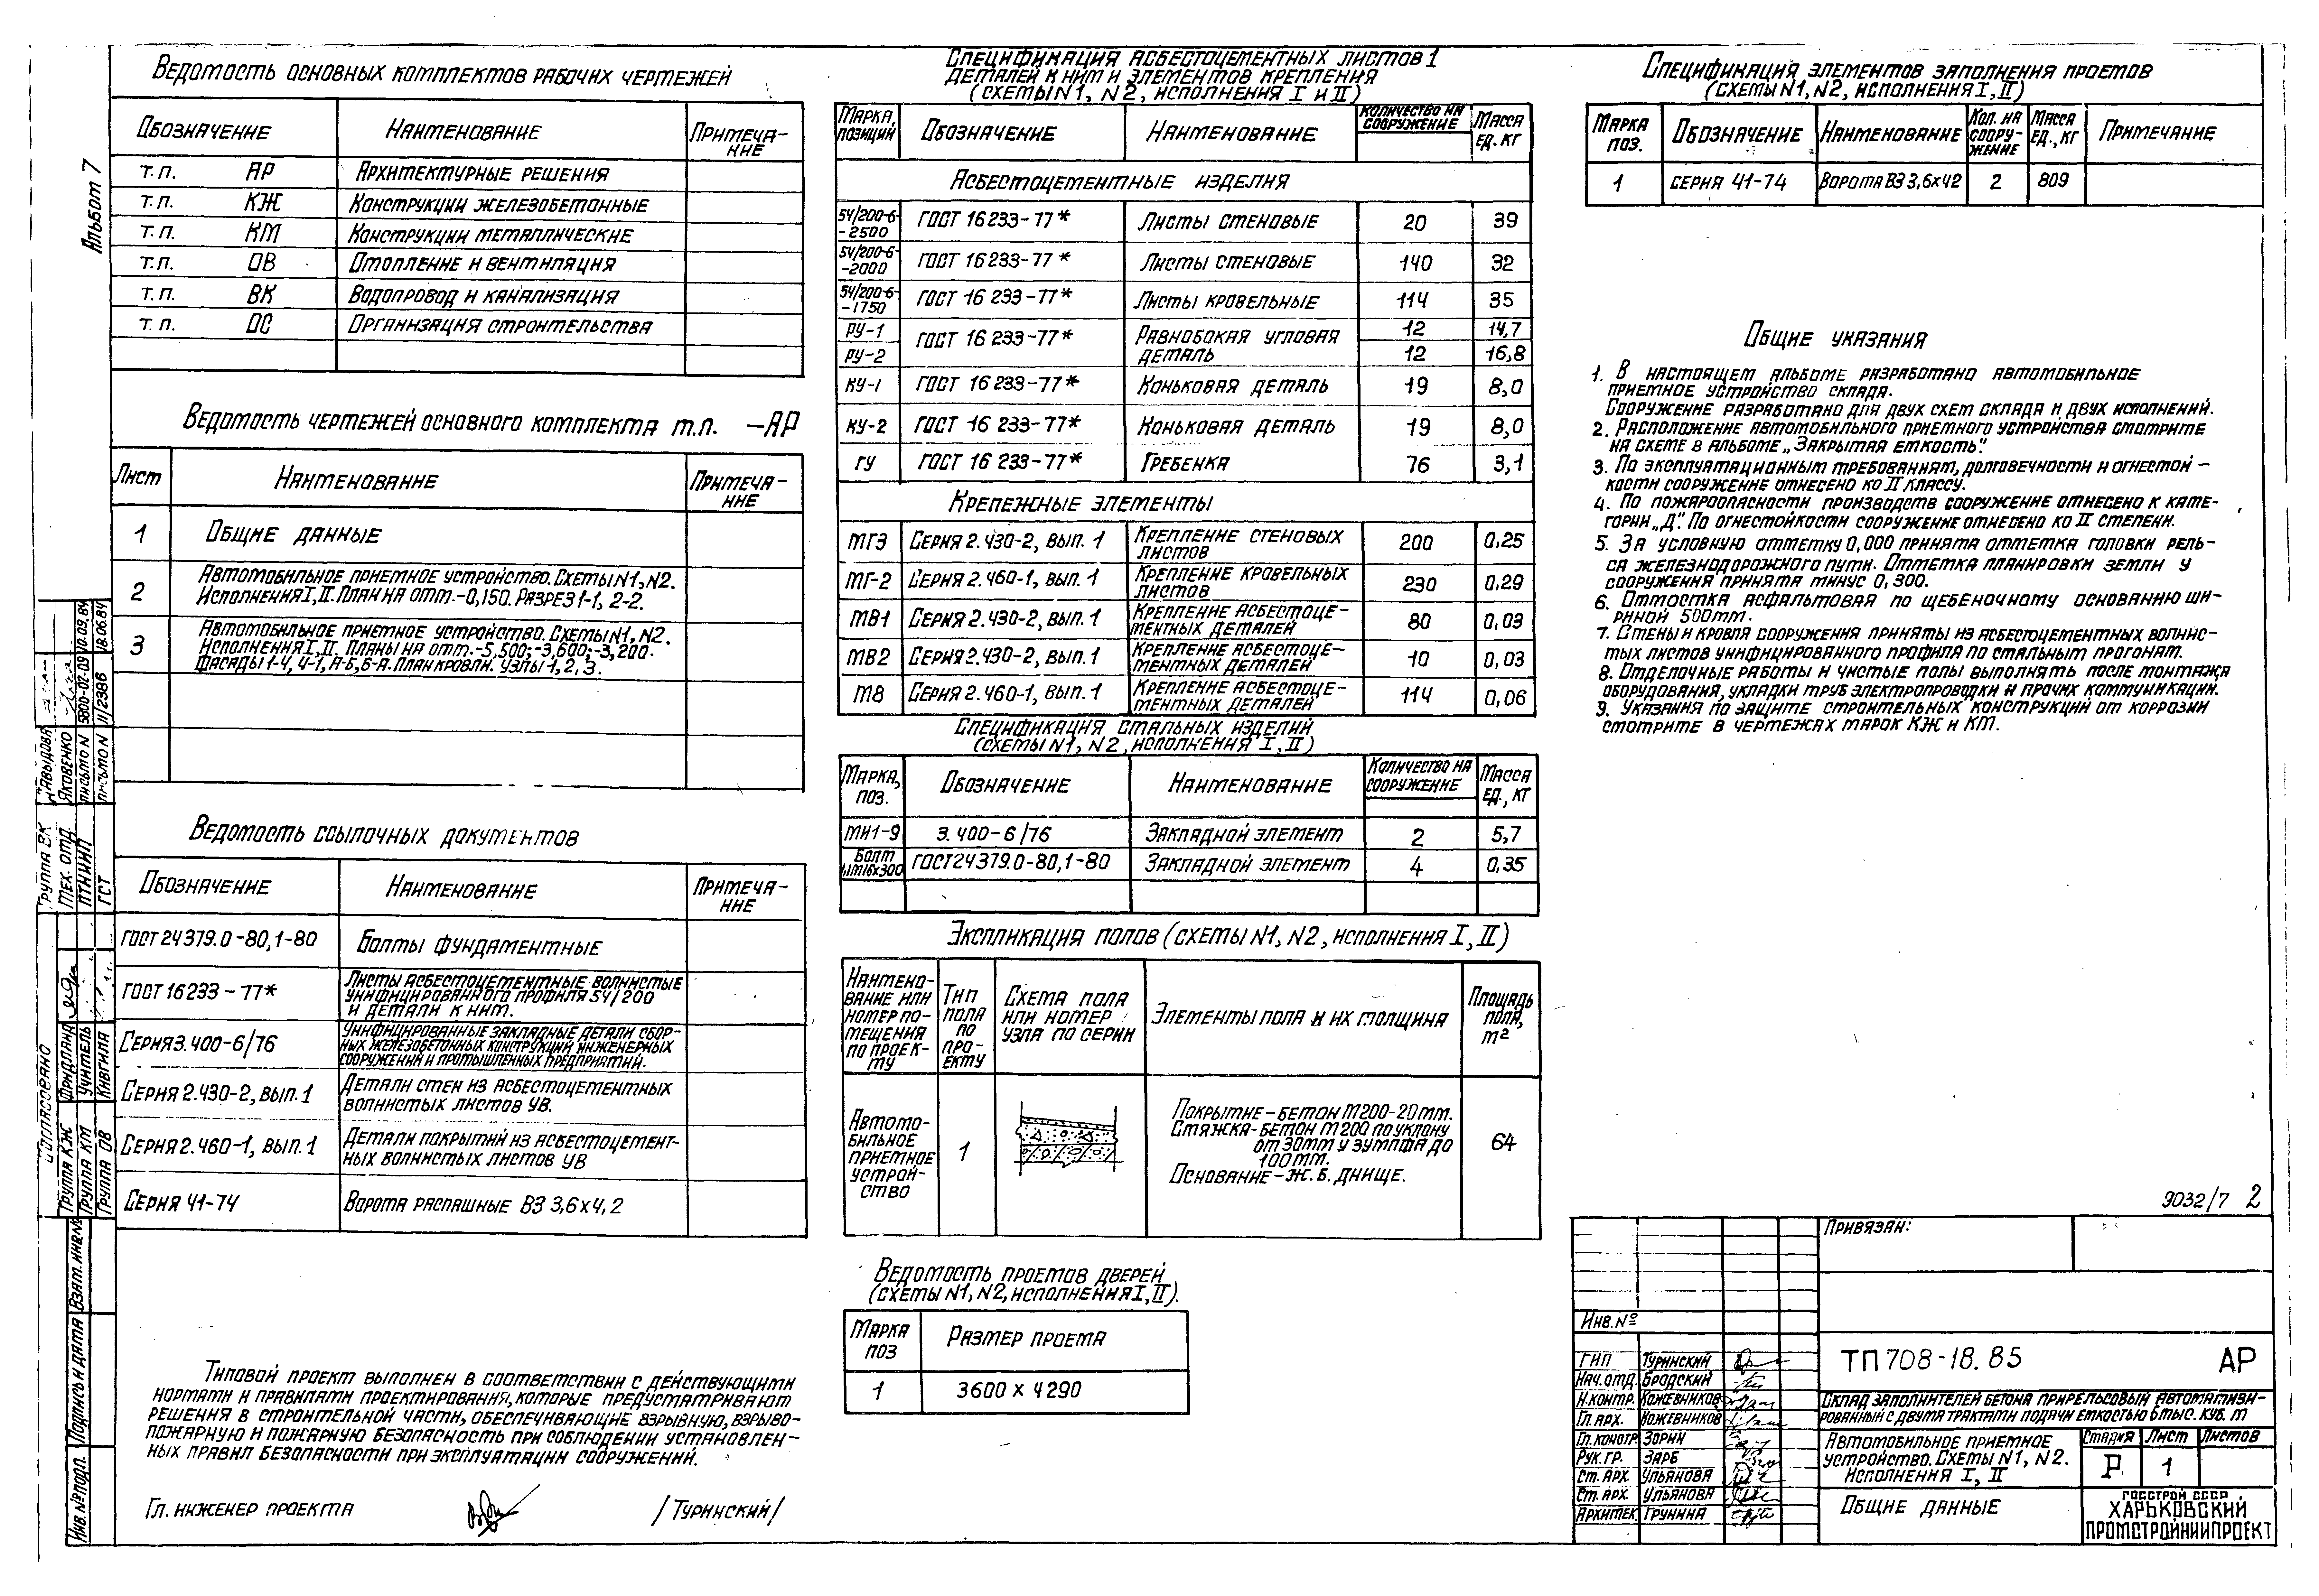 Альбом 7
Ведомость основных комплектов рабочих чертежей
Обозначение Наименование Примеча-
ние
т.п. АР Архитектурные решения
т.п. КЖ Конструкции железобетонные
т.п. КМ Конструкции металлические
т.п. ОВ Отопление и вентиляция
т.п. ВК Водопровод и канализация
т.п. ОС Организация строительства
Ведомость чертежей основного комплекта т.п. –АР
Лист Наименование Примеча-
ние
1 Общие данные
2 Автомобильное приемное устройство. Схемы N1, N2.
Исполнения I, II. План на отм.-0,150. Разрез 1-1, 2-2.
3 Автомобильное приемное устройство. Схемы N1, N2.
Исполнения I, II. Планы на отм.-5,500; -3,600; -3,200.
Фасады 1-4, 4-1, А-Б, Б-А. План кровли. Узлы 1, 2, 3.
Ведомость ссылочных документов
Обозначение Наименование Примеча-
ние
ГОСТ 24379.0-80, 1-80 Болты фундаментные
ГОСТ 16233-77* Листы асбестоцементные волнистые
унифицированного профиля 54/200
и детали к ним.
Серия 3.400-6/76 Унифицированные закладные детали сбор-
ных железобетонных конструкций инженерных
сооружений и промышленных предприятий.
Серия 2.430-2, вып. 1 Детали стен из асбестоцементных
волнистых листов УВ.
Серия 2.460-1, вып. 1 Детали покрытий из асбестоцемент-
ных волнистых листов УВ
Серия 41-74 Ворота распашные ВЗ 3,6х4,2
Типовой проект выполнен в соответствии с действующими
нормами и правилами проектирования, которые предусматривают
решения в строительной части, обеспечивающие взрывную, взрыво-
пожарную и пожарную безопасность при соблюдении установлен-
ных правил безопасности при эксплуатации сооружений.
Гл. инженер проекта /Туринский/
Спецификация асбестоцементных листов 1
деталей к ним и элементов крепления
(схемы N1, N2, исполнения I и II)
Марка, позиций Обозначение Наименование Количество на сооружение Масса ед. кг
Асбестоцементные изделия
54/200-6-2500 ГОСТ 16233-77* Листы стеновые 20 39
54/200-6-2000 ГОСТ 16233-77* Листы стеновые 140 32
54/200-6-1750 ГОСТ 16233-77* Листы кровельные 114 35
РУ-1 ГОСТ 16233-77* Равнобокая угловая 12 14,7
РУ-2 деталь 12 16,8
КУ-1 ГОСТ 16233-77* Коньковая деталь 19 8,0
КУ-2 ГОСТ 16233-77* Коньковая деталь 19 8,0
ГУ ГОСТ 16233-77* Гребенка 76 3,1
Крепежные элементы
МГ3 Серия 2.430-2, вып. 1 Крепление стеновых листов 200 0,25
МГ-2 Серия 2.460-1, вып. 1 Крепление кровельных листов 230 0,29
МВ1 Серия 2.430-2, вып. 1 Крепление асбестоце-
ментных деталей 80 0,03
МВ2 Серия 2.430-2, вып. 1 Крепление асбестоце-
ментных деталей 10 0,03
М8 Серия 2.460-1, вып. 1 Крепление асбестоце-
ментных деталей 114 0,06
Спецификация стальных изделий
(схемы N1, N2, исполнения I, II)
Марка, поз. Обозначение Наименование Количество на сооружение Масса ед., кг
МН1-9 3.400-6/76 Закладной элемент 2 5,7
Болт 1.1М16х300 ГОСТ 24379.0-80, 1-80 Закладной элемент 4 0,35
Экспликация полов (схемы N1, N2, исполнения I, II)
Наимено-
вание или
номер по-
мещения
по проек-
ту
Тип
пола
по
про-
екту
Схема пола
или номер
узла по серии
Элементы пола и их толщина
Площадь
пола,
м2
Автомо-
бильное
приемное
устрой-
ство
1
Покрытие – бетон М200-20мм.
Стяжка – бетон М200 по уклону
от 30мм у зумпфа до
100мм.
Основание – ж.б. днище.
64
Ведомость проемов дверей
(схемы N1, N2, исполнения I, II).
Марка поз Размер проема
1 3600 х 4290
Спецификация элементов заполнения проемов
(схемы N1, N2, исполнения I, II)
Марка поз. Обозначение Наименование Кол. на соору-
жение Масса ед., кг Примечание
1 серия 41-74 Ворота ВЗ 3,6х42 2 809
Общие указания
1. В настоящем альбоме разработано автомобильное
приемное устройство склада.
Сооружение разработано для двух схем склада и двух исполнений.
2. Расположение автомобильного приемного устройства смотрите
на схеме в альбоме „Закрытая емкость".
3. По эксплуатационным требованиям, долговечности и огнестой-
кости сооружение отнесено ко II классу.
4. По пожароопасности производств сооружение отнесено к кате-
гории „Д". По огнестойкости сооружение отнесено ко II степени.
5. За условную отметку 0,000 принята отметка головки рель-
са железнодорожного пути. Отметка планировки земли у
сооружения принята минус 0,300.
6. Отмостка асфальтовая по щебеночному основанию ши-
риной 500мм.
7. Стены и кровля сооружения приняты из асбестоцементных волнис-
тых листов унифицированного профиля по стальным прогонам.
8. Отделочные работы и чистые полы выполнять после монтажа
оборудования, укладки труб электропроводки и прочих коммуникаций.
9. Указания по защите строительных конструкций от коррозии
смотрите в чертежах марок КЖ и КМ.
9032/7 2
Привязан:
Инв. №
ГИП Туринский
Нач. отд. Бродский
Н.контр. Кожевников
Гл. арх. Кожевников
Гл. констр. Зорин
Рук. гр. Зарб
Ст. арх. Ульянова
Ст. арх. Ульянова
Архитек. Грунина
ТП 708-18.85 АР
Склад заполнителей бетона прирельсовый автоматизи-
рованный с двумя трактами подачи емкостью 6 тыс. куб. м
Автомобильное приемное
устройство. Схемы N1, N2.
Исполнения I, II
Стадия Лист Листов
Р 1
Общие данные
Госстрой СССР
Харьковский
Промстройниипроект
Согласовано
Группа КЖ Фридланд
Группа КМ Учитель
Группа ОВ Кивгила
Группа ВК Давыдова
Тех. отд. Яковенко
ПТНИИП письмо N 5800-02-09 10.09.84
ГСТ письмо N 11/2386 18.06.84
Взят. инв.№
Подпись и дата
Инв. № подл.